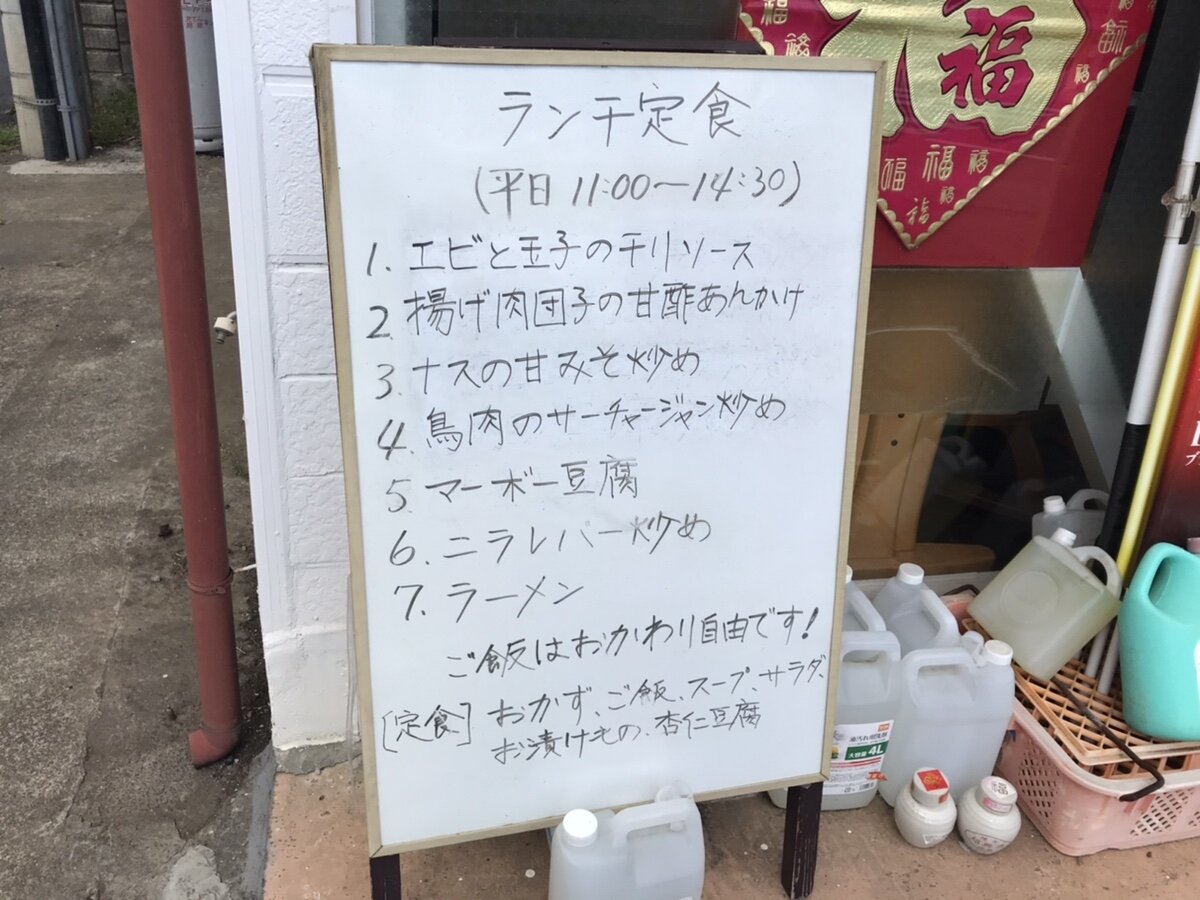 ランチ定食
(平日 11:00〜14:30)
1. エビと玉子のチリソース
2. 揚げ肉団子の甘酢あんかけ
3. ナスの甘みそ炒め
4. 鳥肉のサーチャージャン炒め
5. マーボー豆腐
6. ニラレバー炒め
7. ラーメン
ご飯はおかわり自由です!
[定食] おかず、ご飯、スープ、サラダ、
お漬けもの、杏仁豆腐
福
福 福 福
福
油汚れ用洗剤
大容量 4L
福